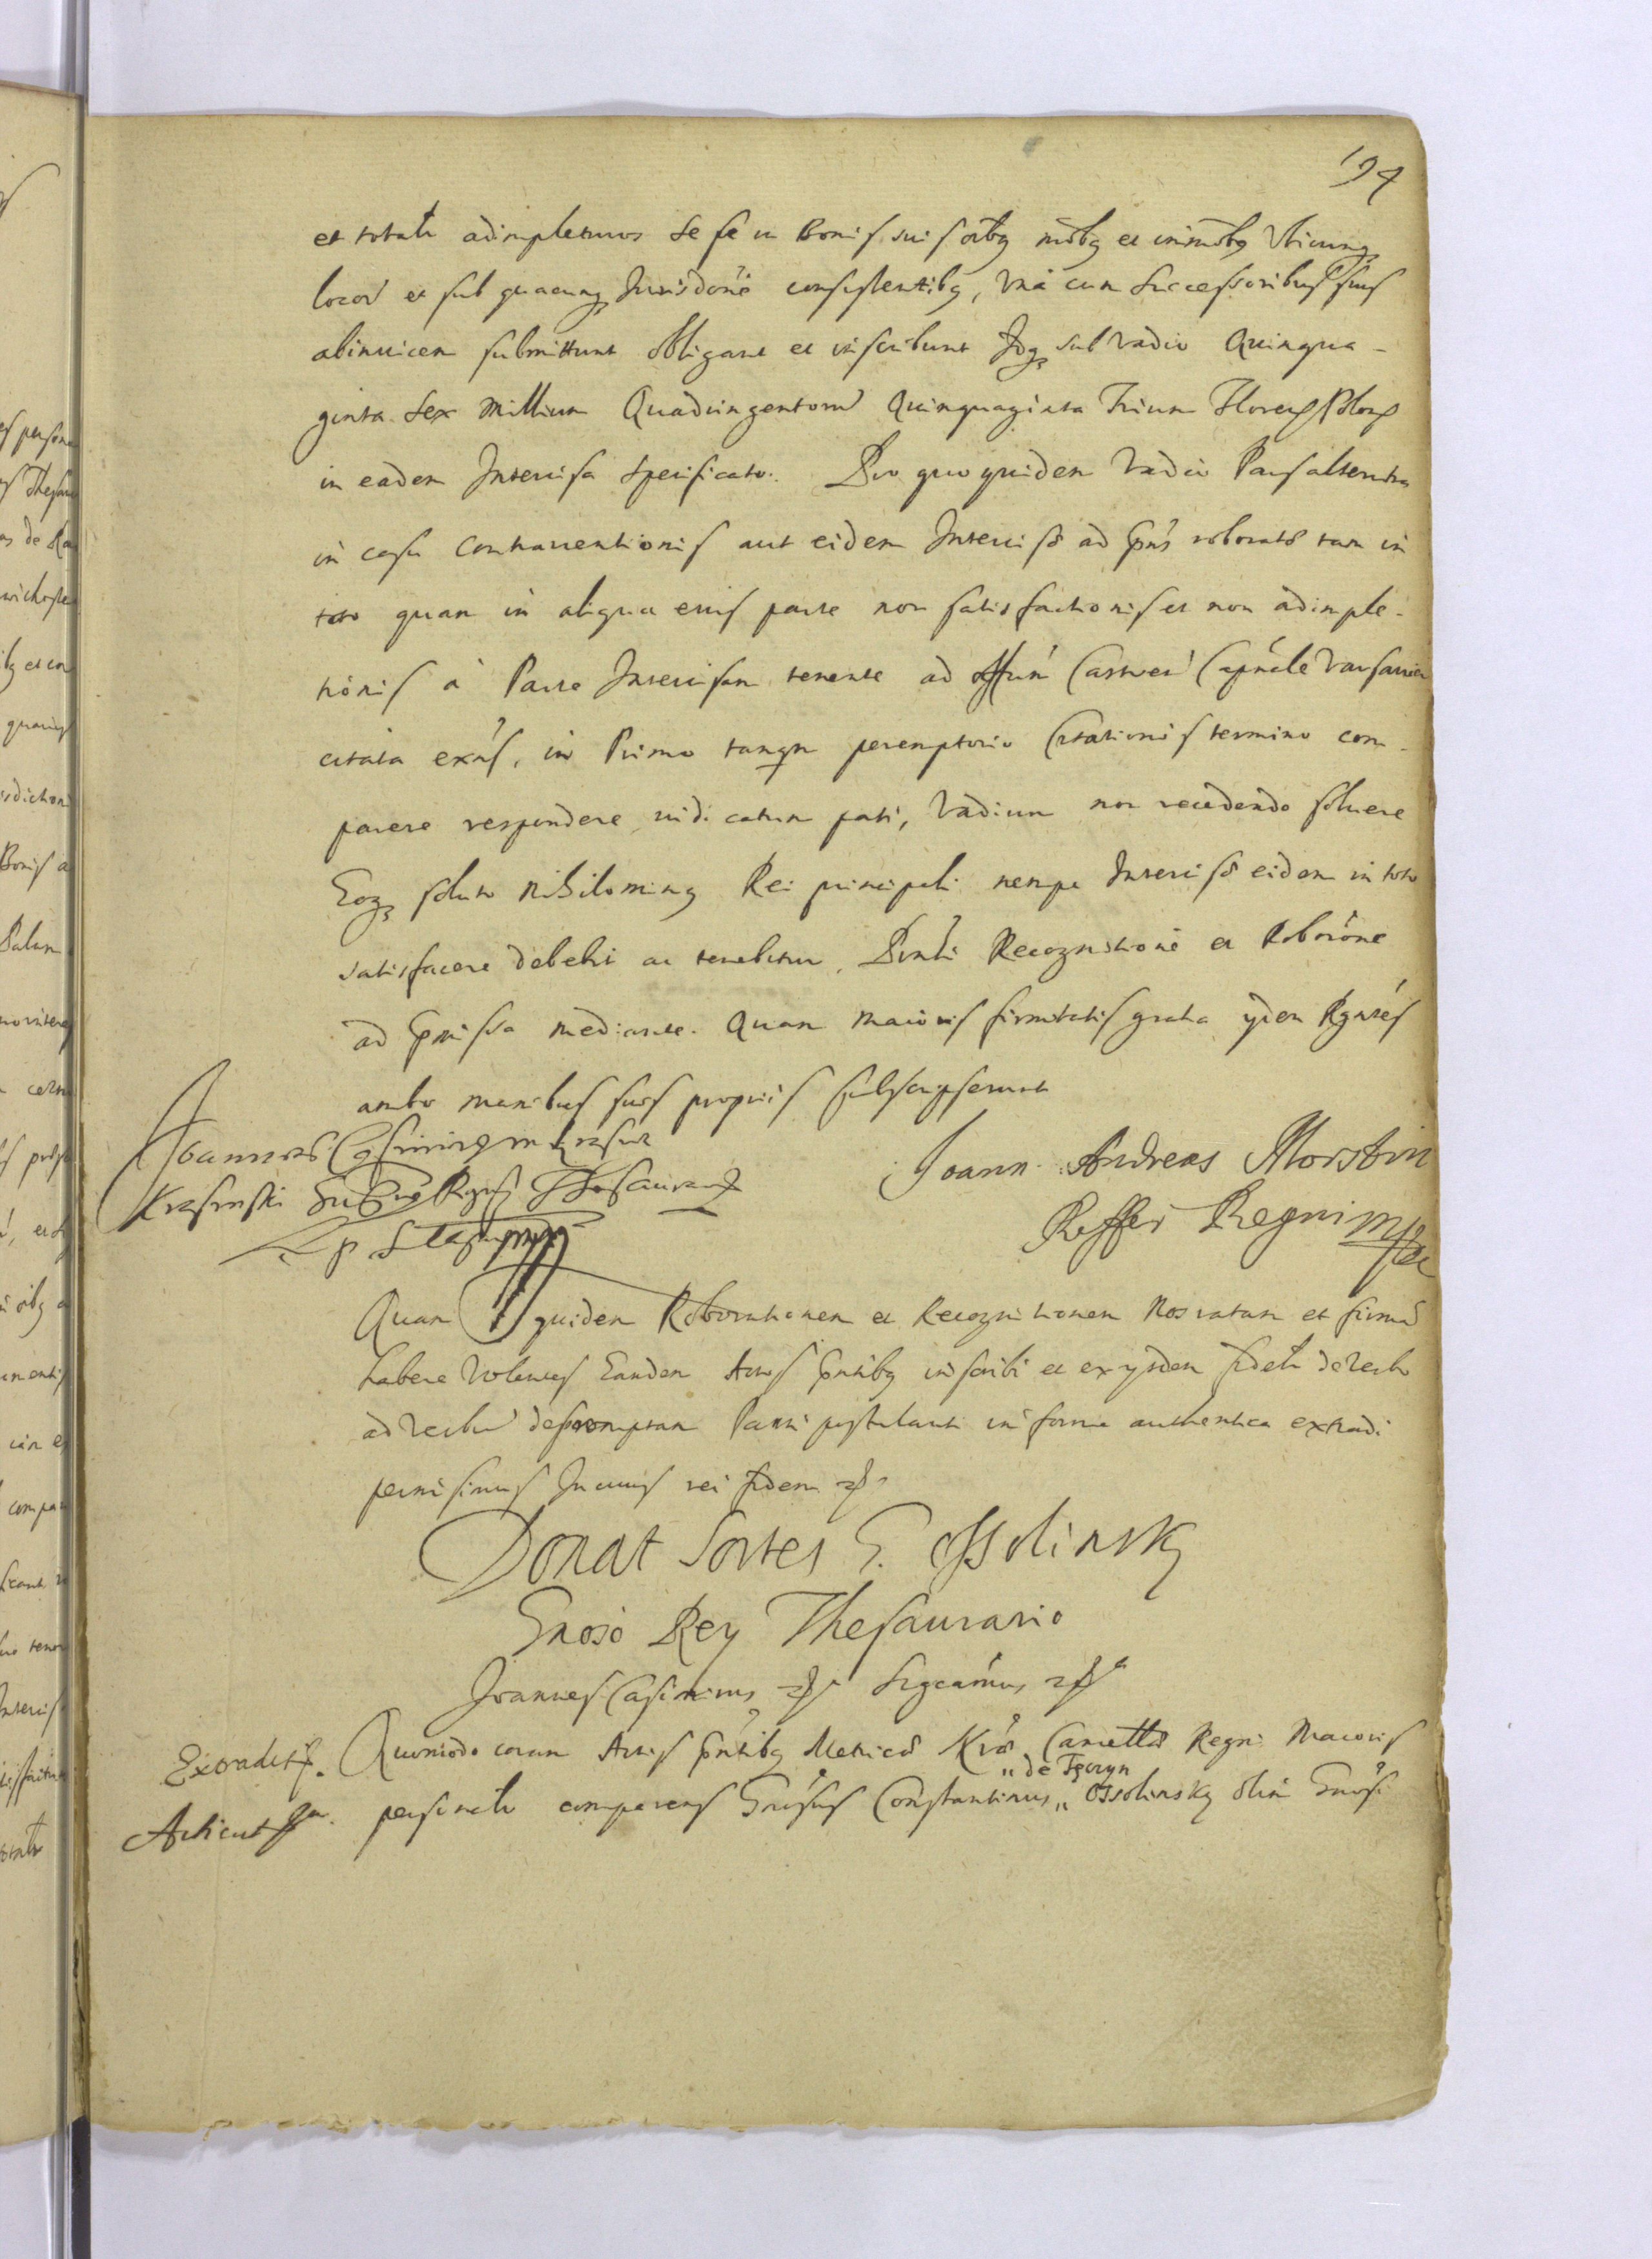 194
et totalr adimpleturos se se in Bonis suis oibq mobq et inmobq Vbicunq
locor et sub quacunq Jurisdone consistentibq, Vna cum Successoribus suis
abinuicem submittunt obligant et inscribunt Idq sub Vadio Quinqua-
ginta Sex Millium Quadringentoru Quinquaginta Trium Floren Polon
in eadem Intercisa specificato. Pro quo quidem Vadio Pars alterutra
in casu contrauentionis aut eidem Intercisae ad pns roboratae tam in
toto quam in aliqua eius parte non satisfactionis et non adimple-
tionis à Parte Intercisam tenente ad Offin Castren Capnale Varsauien
citata exns, in Primo tanqm peremptorio Citationis termino com-
parere respondere iudicatum pati, Vadium non recedendo soluere
Eoq soluto nihilominq Rei principali nempe Intercisae eidem in toto
satisfacere debebit ac tenebitur. Pnti Recognitione et Roborone
ad pmissa mediante. Quam maioris firmitatis gratia ydem Rgntes
ambo manibus suis proprijs subscripserunt
Joannes Casimirus in Krasne
Krasinski Thesaurari
Joann. Andreas Morstin
Reffer Regni mp
Quam quidem Roborationem et Recognitionem Nos ratam et firma
habere Volentes Eandem Actis pntibq inscribi et ex ysdem fidelr de Verbo
ad Verbu depromptam Parti postulanti in forma authentica extradi
permisimus In cuius rei fidem
Donat Sortes G. Ossolinsky
Gnoso Rey Thesaurario
Joannes Casimirus Sigeamus
Extradit. Quomodo coram Actis pntibq Metrices Kra Cancellae Regni Maioris
„ de Tęczyn
personalr comparens Gnosus Constantinus „ Ossolinsky olim Gnosi